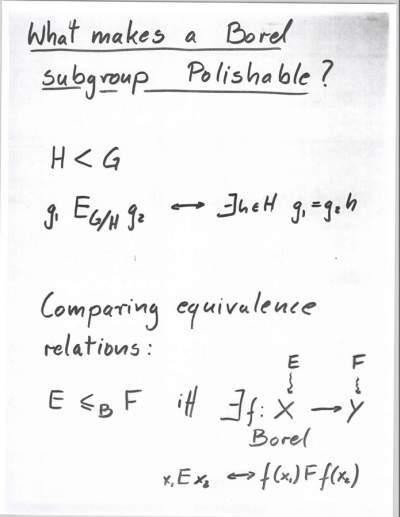 What makes a Borel
subgroup Polishable?
H < G
g₁ E_{G/H} g₂ ↔ ∃h∈H g₁=g₂h
Comparing equivalence
relations:
E F
E ≤_B F iff ∃f: X → Y
Borel
x₁Ex₂ ↔ f(x₁)Ff(x₂)